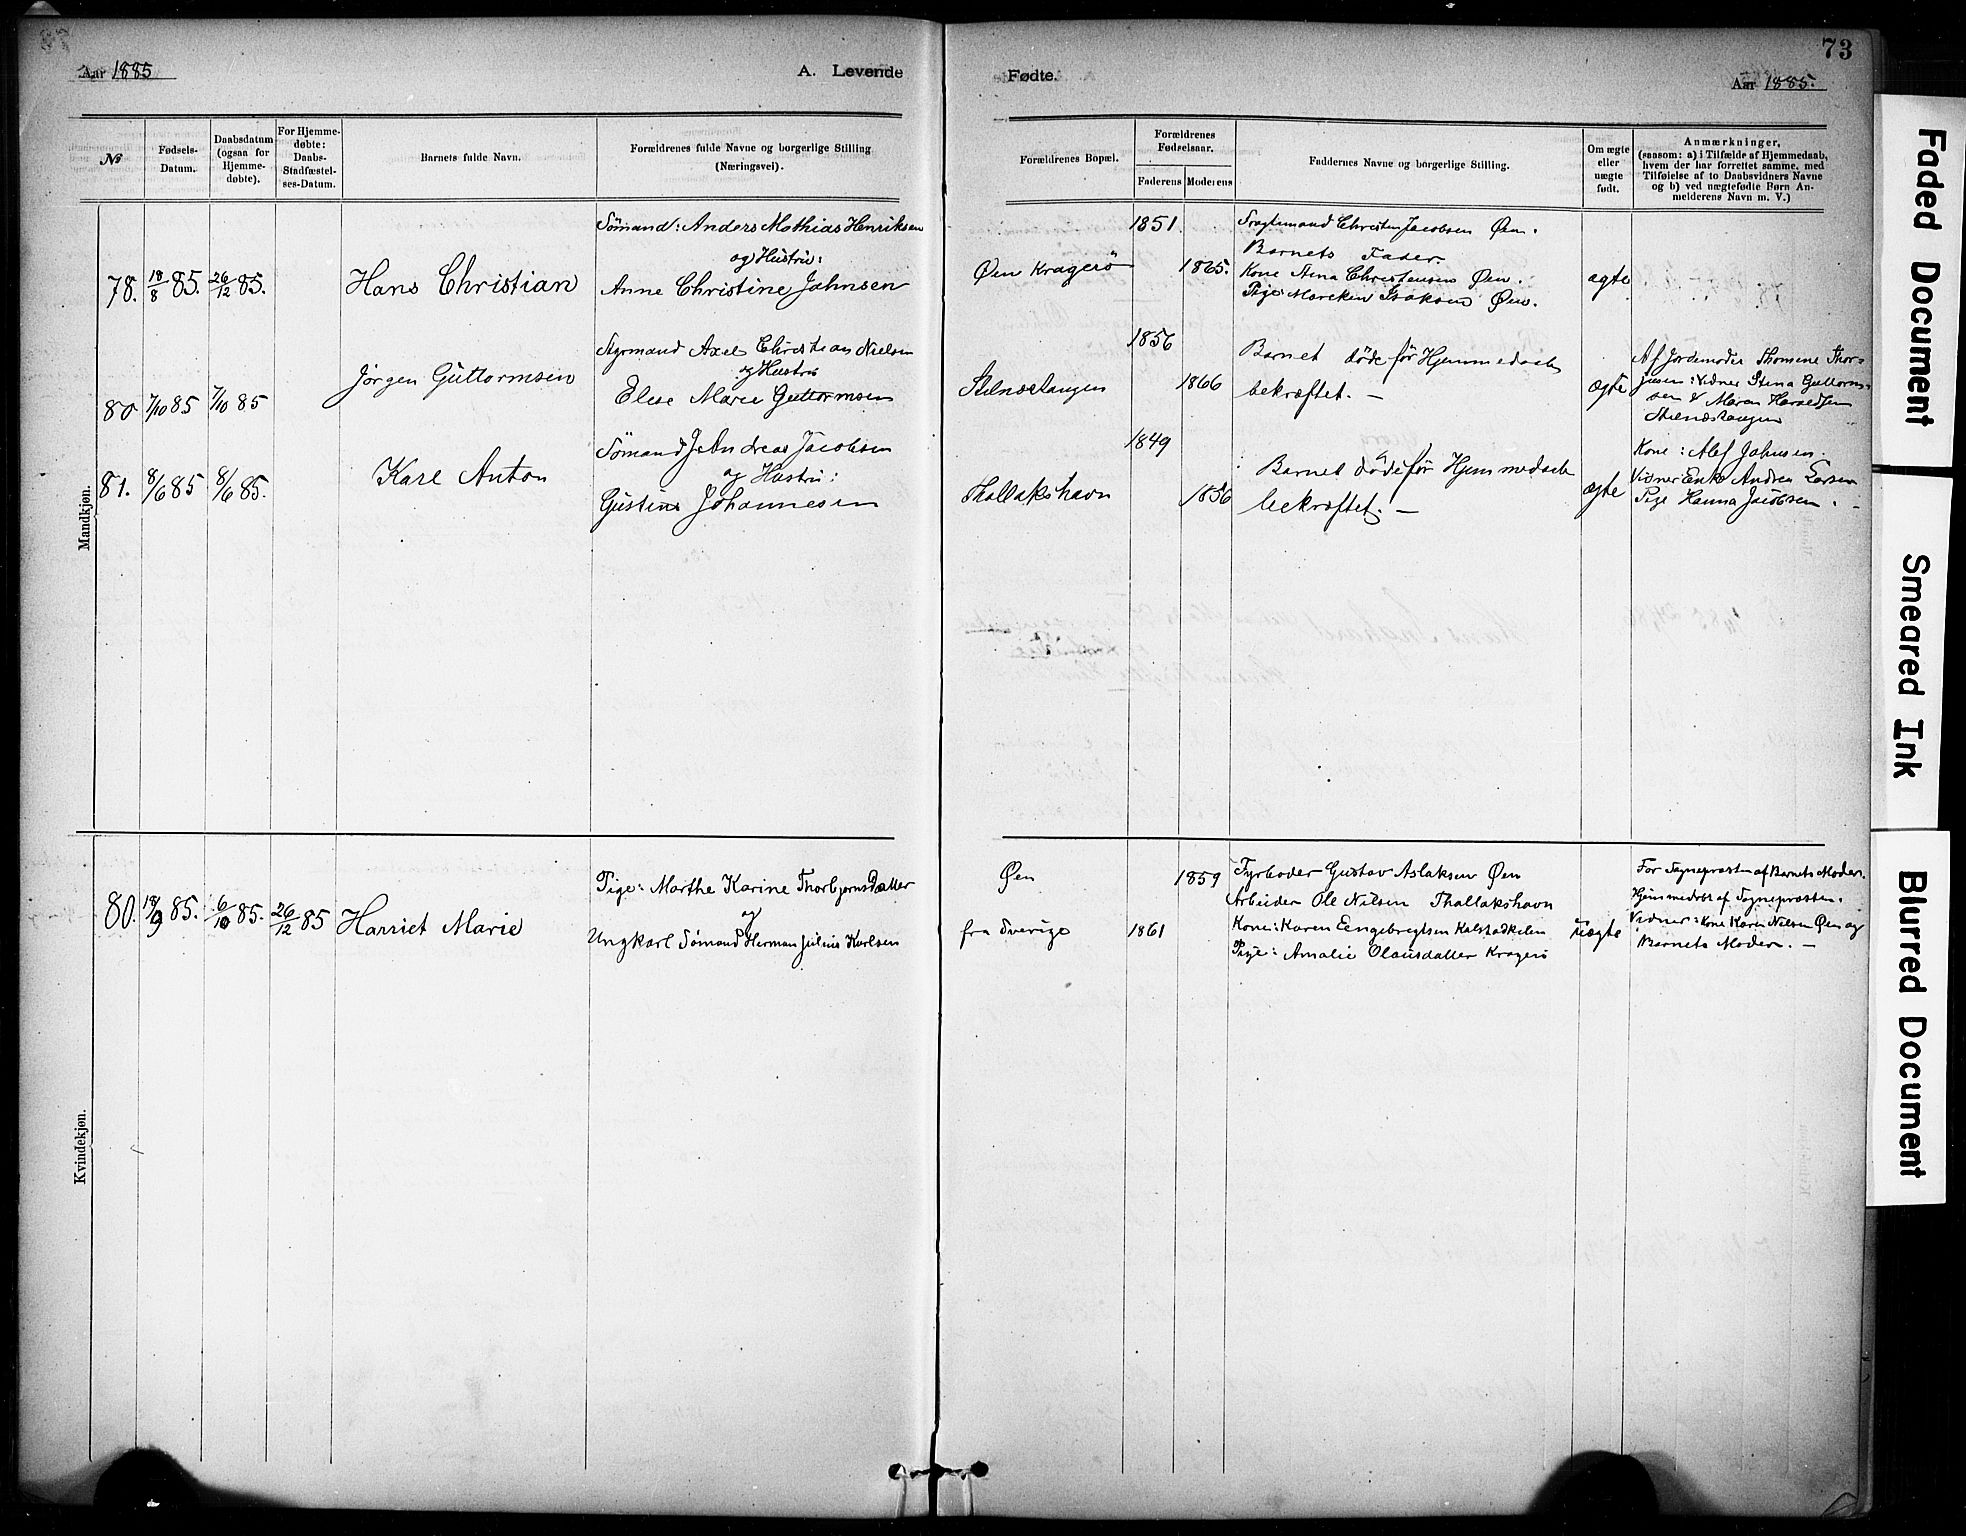 73
Aar 1885
A. Levende
Fødte.
Aar 1885.
№
Fødsels-
Datum.
Daabsdatum
(ogsaa for
Hjemme-
døbte).
For Hjemme-
døbte:
Daabs-
Stadfæstel-
ses-Datum.
Barnets fulde Navn.
Forældrenes fulde Navne og borgerlige Stilling
(Næringsvei).
Forældrenes Bopæl.
Forældrenes
Fødselsaar.
Faderens
Moderens
Faddernes Navne og borgerlige Stilling.
Om ægte
eller
uægte
født.
Anmærkninger,
(saasom: a) i Tilfælde af Hjemmedaab,
hvem der har forrettet samme, med
Tilføielse af to Daabsvidners Navne
og b) ved uægtefødte Børn An-
melderens Navn m. V.)
Mandkjøn.
78. 18/8 85. 26/12 85.
Hans Christian
Sömand: Anders Mathias Henriksen
og Hustru:
Anne Christine Jahnsen
Øen Kragerö
1851.
1865.
Christen Jacobsen Øen.
Barnets Fader.
Kone Stina Christensen Øen.
Pige Mareken Isaksen Øen.
ægte
80 7/10 85 7/10 85
Jörgen Guttormsen
Styrmand Axel Christian Nielsen
og Hustru
Elise Marie Guttormsen
Stenstangen
1856
1866
Barnet døde før Hjemmedaab
bekræftet. —
ægte
Af Jordemoder Thomine Thor-
Vidner Stina Guttorm-
sen & Maren
Stenstangen
81. 8/6 85 8/6 85.
Karl Anton
Sömand J. Andreas Jacobsen
og Hustru:
Gustine Johannesen
Thallakshavn
1849
1856
Barnet döde før Hjemmedaab
bekræftet. —
ægte
Kone: Alef Jahnsen.
Vidner Enke Andrea Larsen
Pige Hanna Jacobsen. —
Kvindekjøn.
80. 18/9 85. 6/10 85. 26/12 85
Harriet Marie
Pige: Marthe Karine Thorbjørnsdatter
og
Ungkarl Sømand Herman Julius Karlsen
Øen
fra Sverige
1859
1861
Fyrbøder Gustav Aslaksen Øen
Arbeider Ole Nilsen Thallakshavn
Kone: Karen Eengebregtsen Kalstadkilen
Pige: Amalie Olausdatter Kragerö
uægte
For Sognepræsten af Barnets Moder.
Hjemmedöbt af Sognepræsten.
Vidner: Kone Karen Nilsen Øen og
Barnets Moder. —
Faded Document
Smeared Ink
Blurred Document